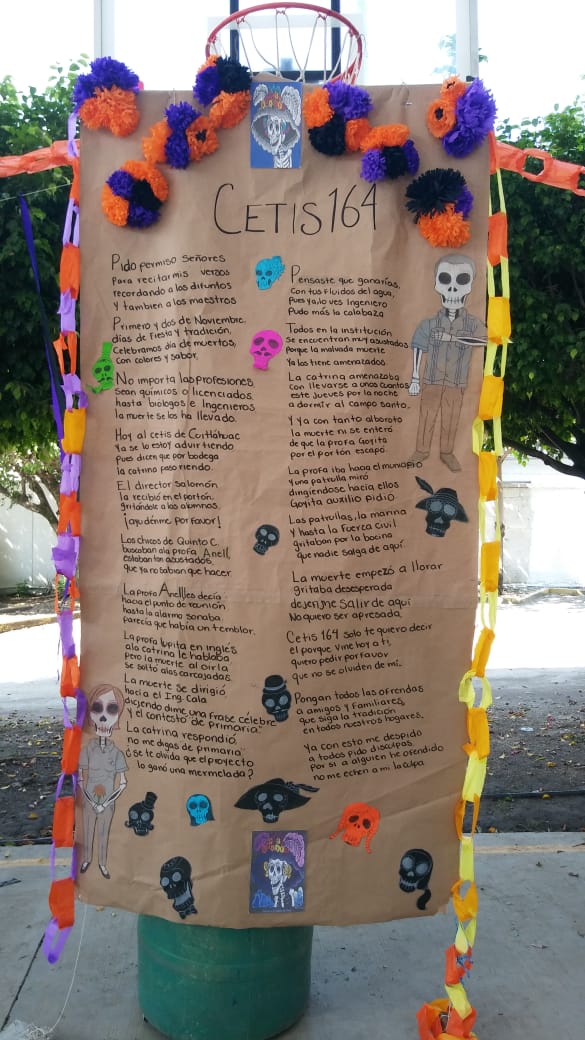 CETIS 164
Pido permiso Señores
para recitar mis versos
recordando a los difuntos
y tambien a los maestros
Primero y dos de Noviembre,
días de fiesta y tradición,
Celebramos día de muertos,
con colores y sabor.
No importa las profesiones
sean químicos o licenciados
hasta biólogos e Ingenieros
la muerte se los ha llevado.
Hoy al cetis de Cuitláhuac
Ya se lo estoy advirtiendo
Pues dicen que por bodega
la catrina paso riendo.
El director salomón
la recibió en el portón.
gritándole a los alumnos
¡ayudenme por favor!
Los chicos de Quinto C.
buscaban ala profa Anell,
estaban tan asustados
que ya no sabian que hacer.
La profa Anell les decía
hacia el punto de reunión
hasta la alarma sonaba
parecia que había un temblor.
La profa lupita en inglés
a la catrina le hablaba
pero la muerte al oirla
se solto alas carcajadas.
La muerte se dirigió
hacia el Ing Cala
diciendo dime una frase célebre
y el contesto de primaria
La catrina respondió
no me digas de primaria
ó se te olvida que el proyecto
lo ganó una mermelada?
Pensaste que ganarias,
Con tus fluidos del agua,
Pues ya lo ves Ingeniero
Pudo más la calabaza
Todos en la institución
Se encuentran muy asustados
Porque la malvada muerte
Ya los tiene amenazados.
La catrina amenazaba
con llevarse a unos cuantos
este jueves por la noche
a dormir al campo santo.
Y ya con tanto alboroto
la muerte ni se enteró
de que la profa Goyita
por el portón escapó.
La profa iba hacia el municipio
y una patrulla miró
dirigiendose hacia ellos
Goyita auxilio pidio.
Las patrullas, la marina
y hasta la Fuerca Civil
gritaban por la bocina
que nadie salga de aquí.
La muerte empezó a llorar
gritaba desesperada
dejenjne salir de aqui
No quiero ser apresada
Cetis 164 solo te quiero decir
el porque vine hoy a ti,
quiero pedir por favor
que no se olviden de mí.
Pongan todos las ofrendas
a amigos y familiares,
que siga la tradición
en todos nuestros hogares.
Ya con esto me despido
a todos pido disculpas
por si a alguien he ofendido
no me echen a mi la culpa